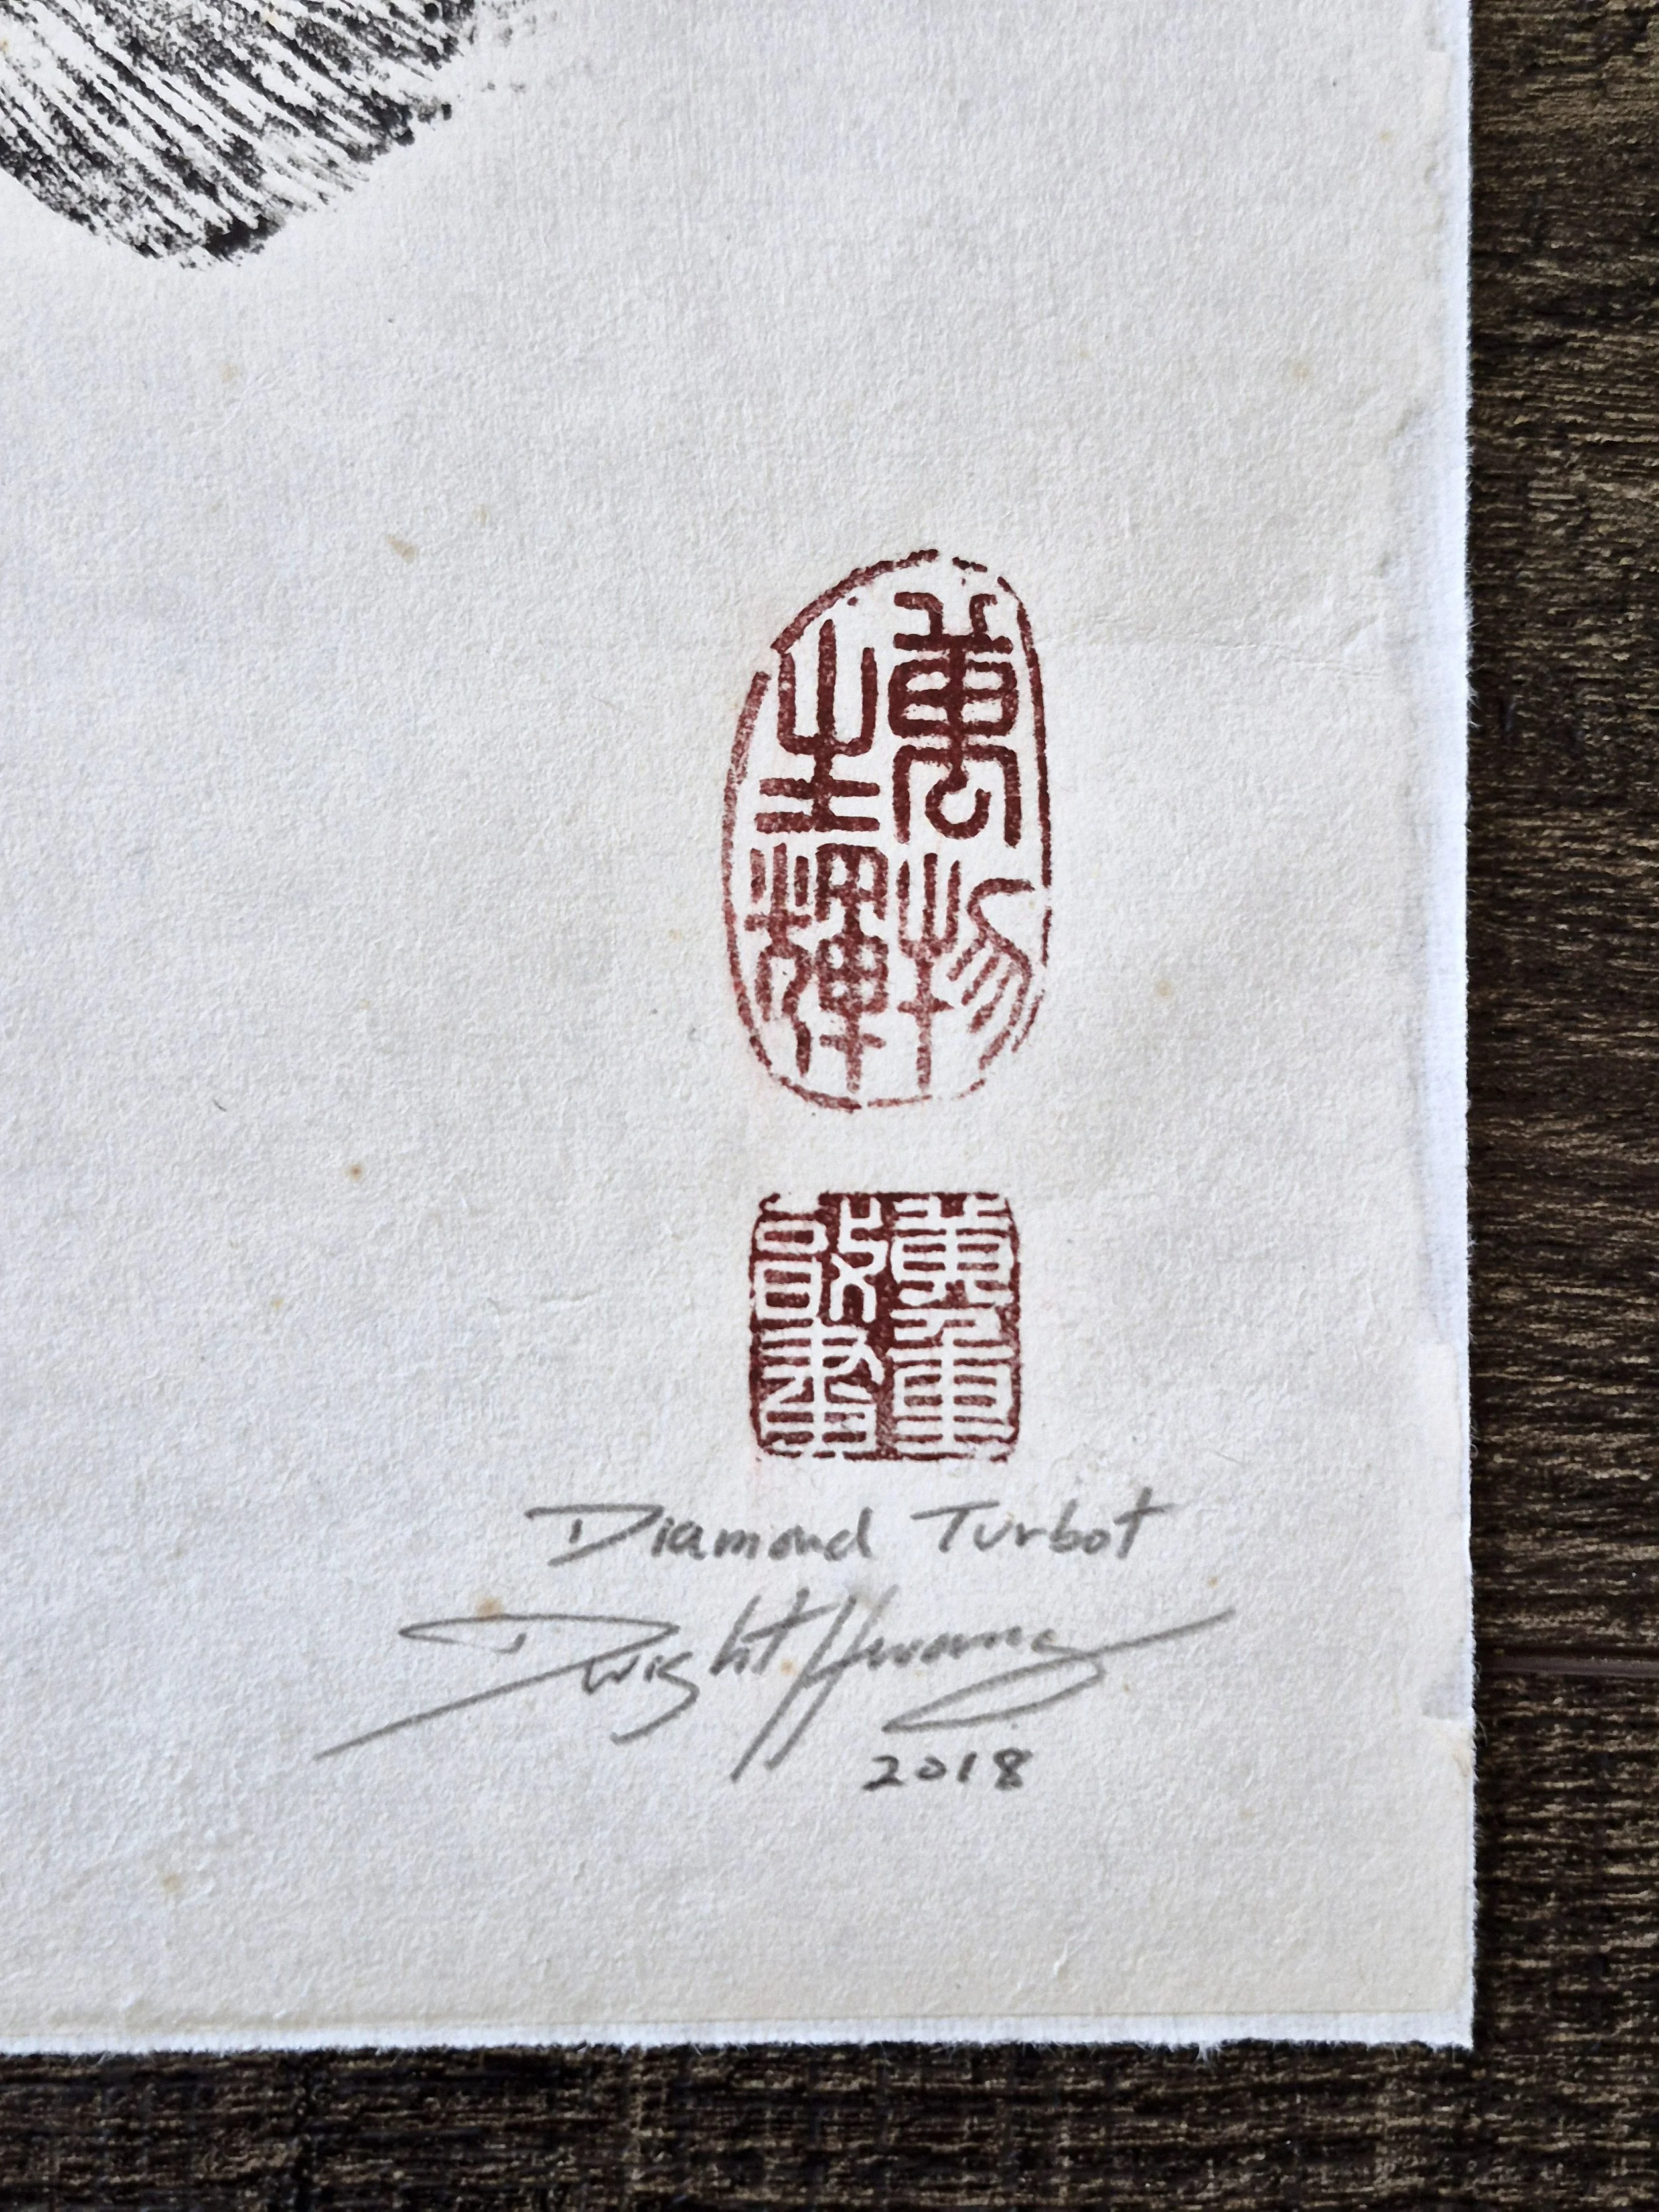 萬物
生輝
Diamond Turbot
Dwight Hwang
2018